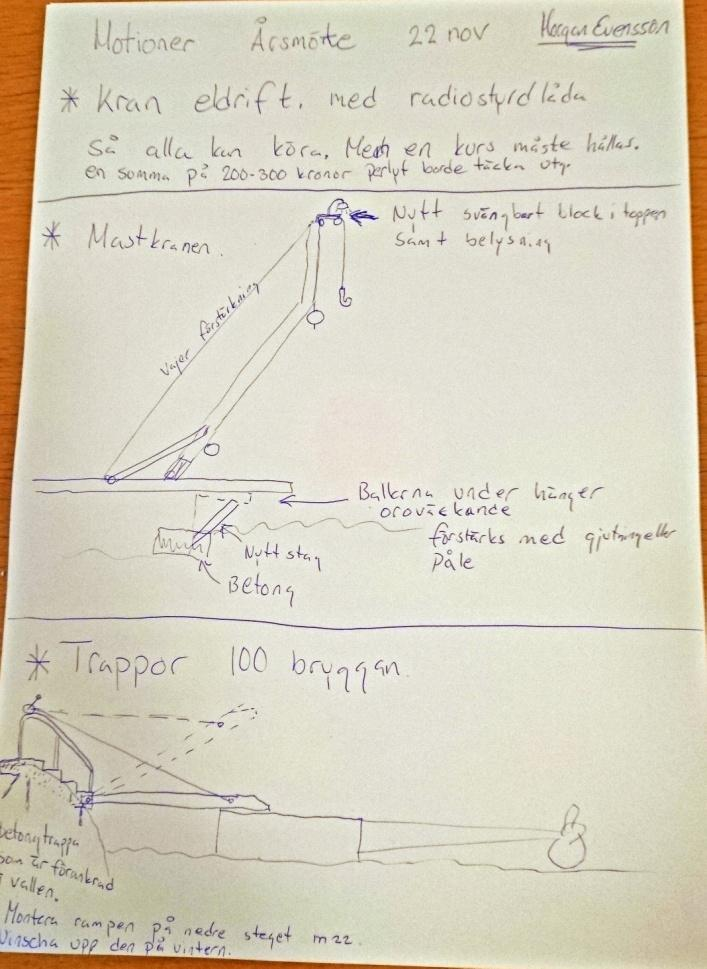 Motioner Årsmöte 22 nov Morgan Evensson
* Kran eldrift. med radiostyrd låda
Så alla kan köra. Men en kurs måste hållas.
en somma på 200-300 kronor perlyft borde täcka utg.
* Mastkranen.
Nytt svängbart block i toppen
samt belysning
Vajer förstärkning
Balkarna under hänger
oroväckande
förstärks med gjutning eller
påle
Nytt stag
Betong
* Trappor 100 bryggan.
betongtrappa
som är förankrad
i vallen.
Montera rampen på nedre steget m22.
Vinscha upp den på vintern.